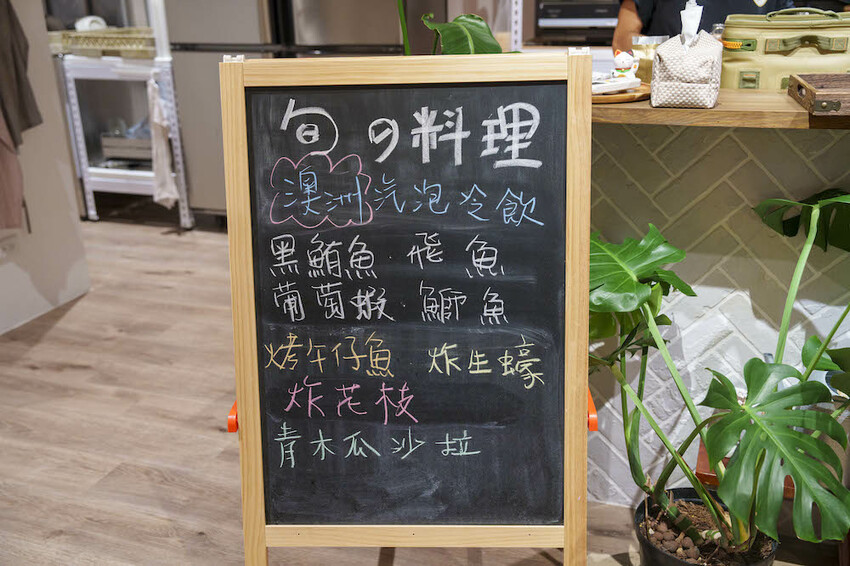 旬の料理
澳洲汽泡冷飲
黑鮪魚·飛魚
葡萄蝦·鰤魚
烤午仔魚 炸生蠔
炸花枝
青木瓜沙拉